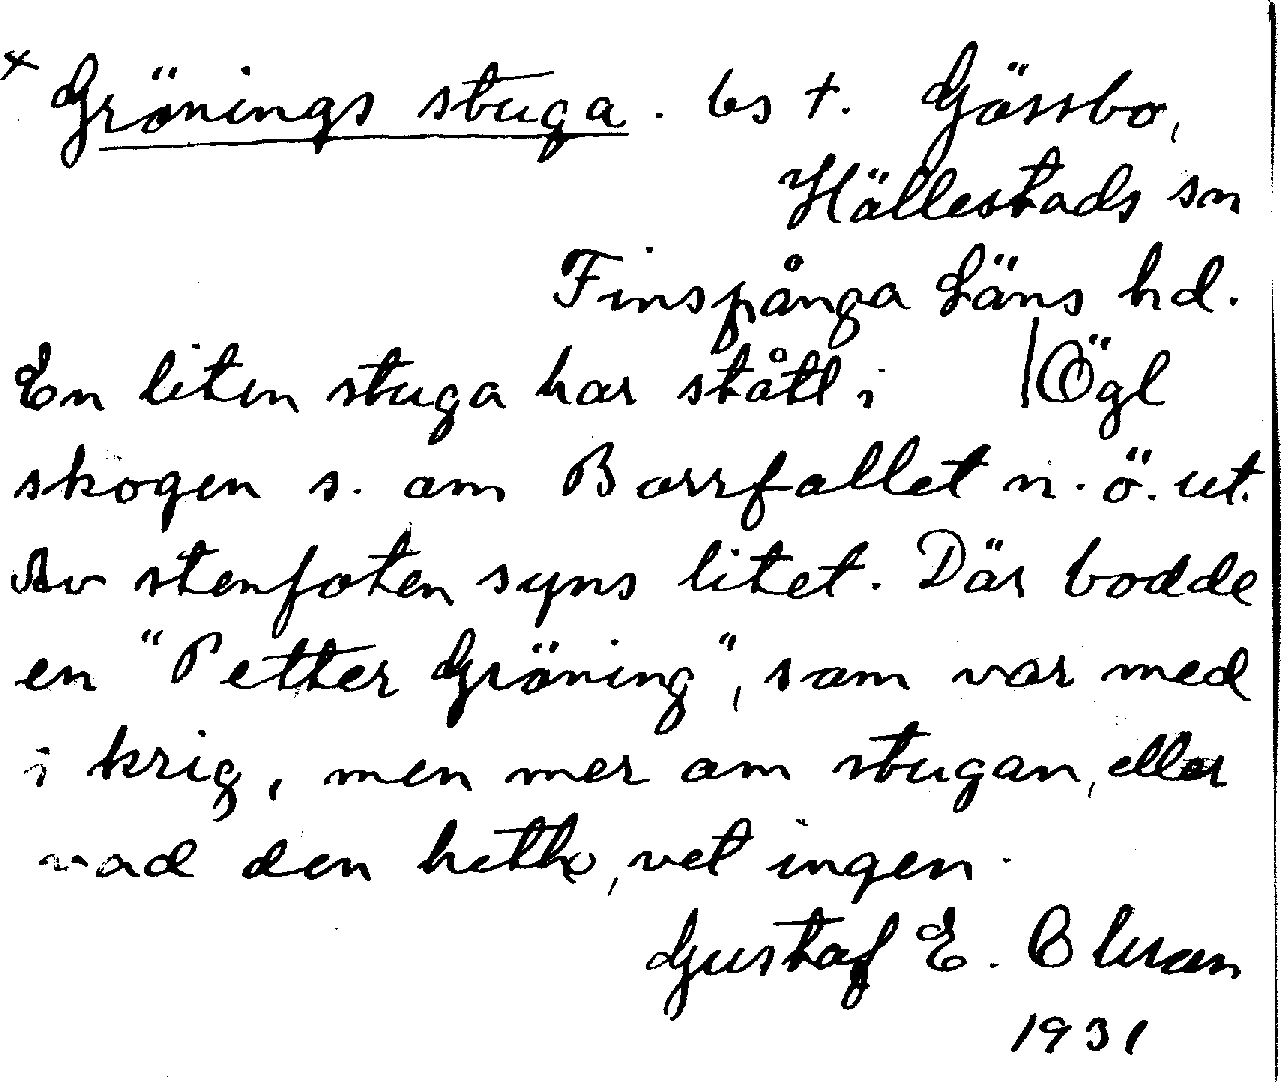 × Grönings stuga. bs t. Gössbo,
Hällestads sn
Finspånga Läns hd.
En liten stuga har stått i | Ögl
skogen s. om Borrfallet n. ö. ut.
Av stenfoten syns litet. Där bodde
en "Petter Gröning", som var med
i krig, men mer om stugan, eller
vad den hette, vet ingen.
Gustaf E.
1931